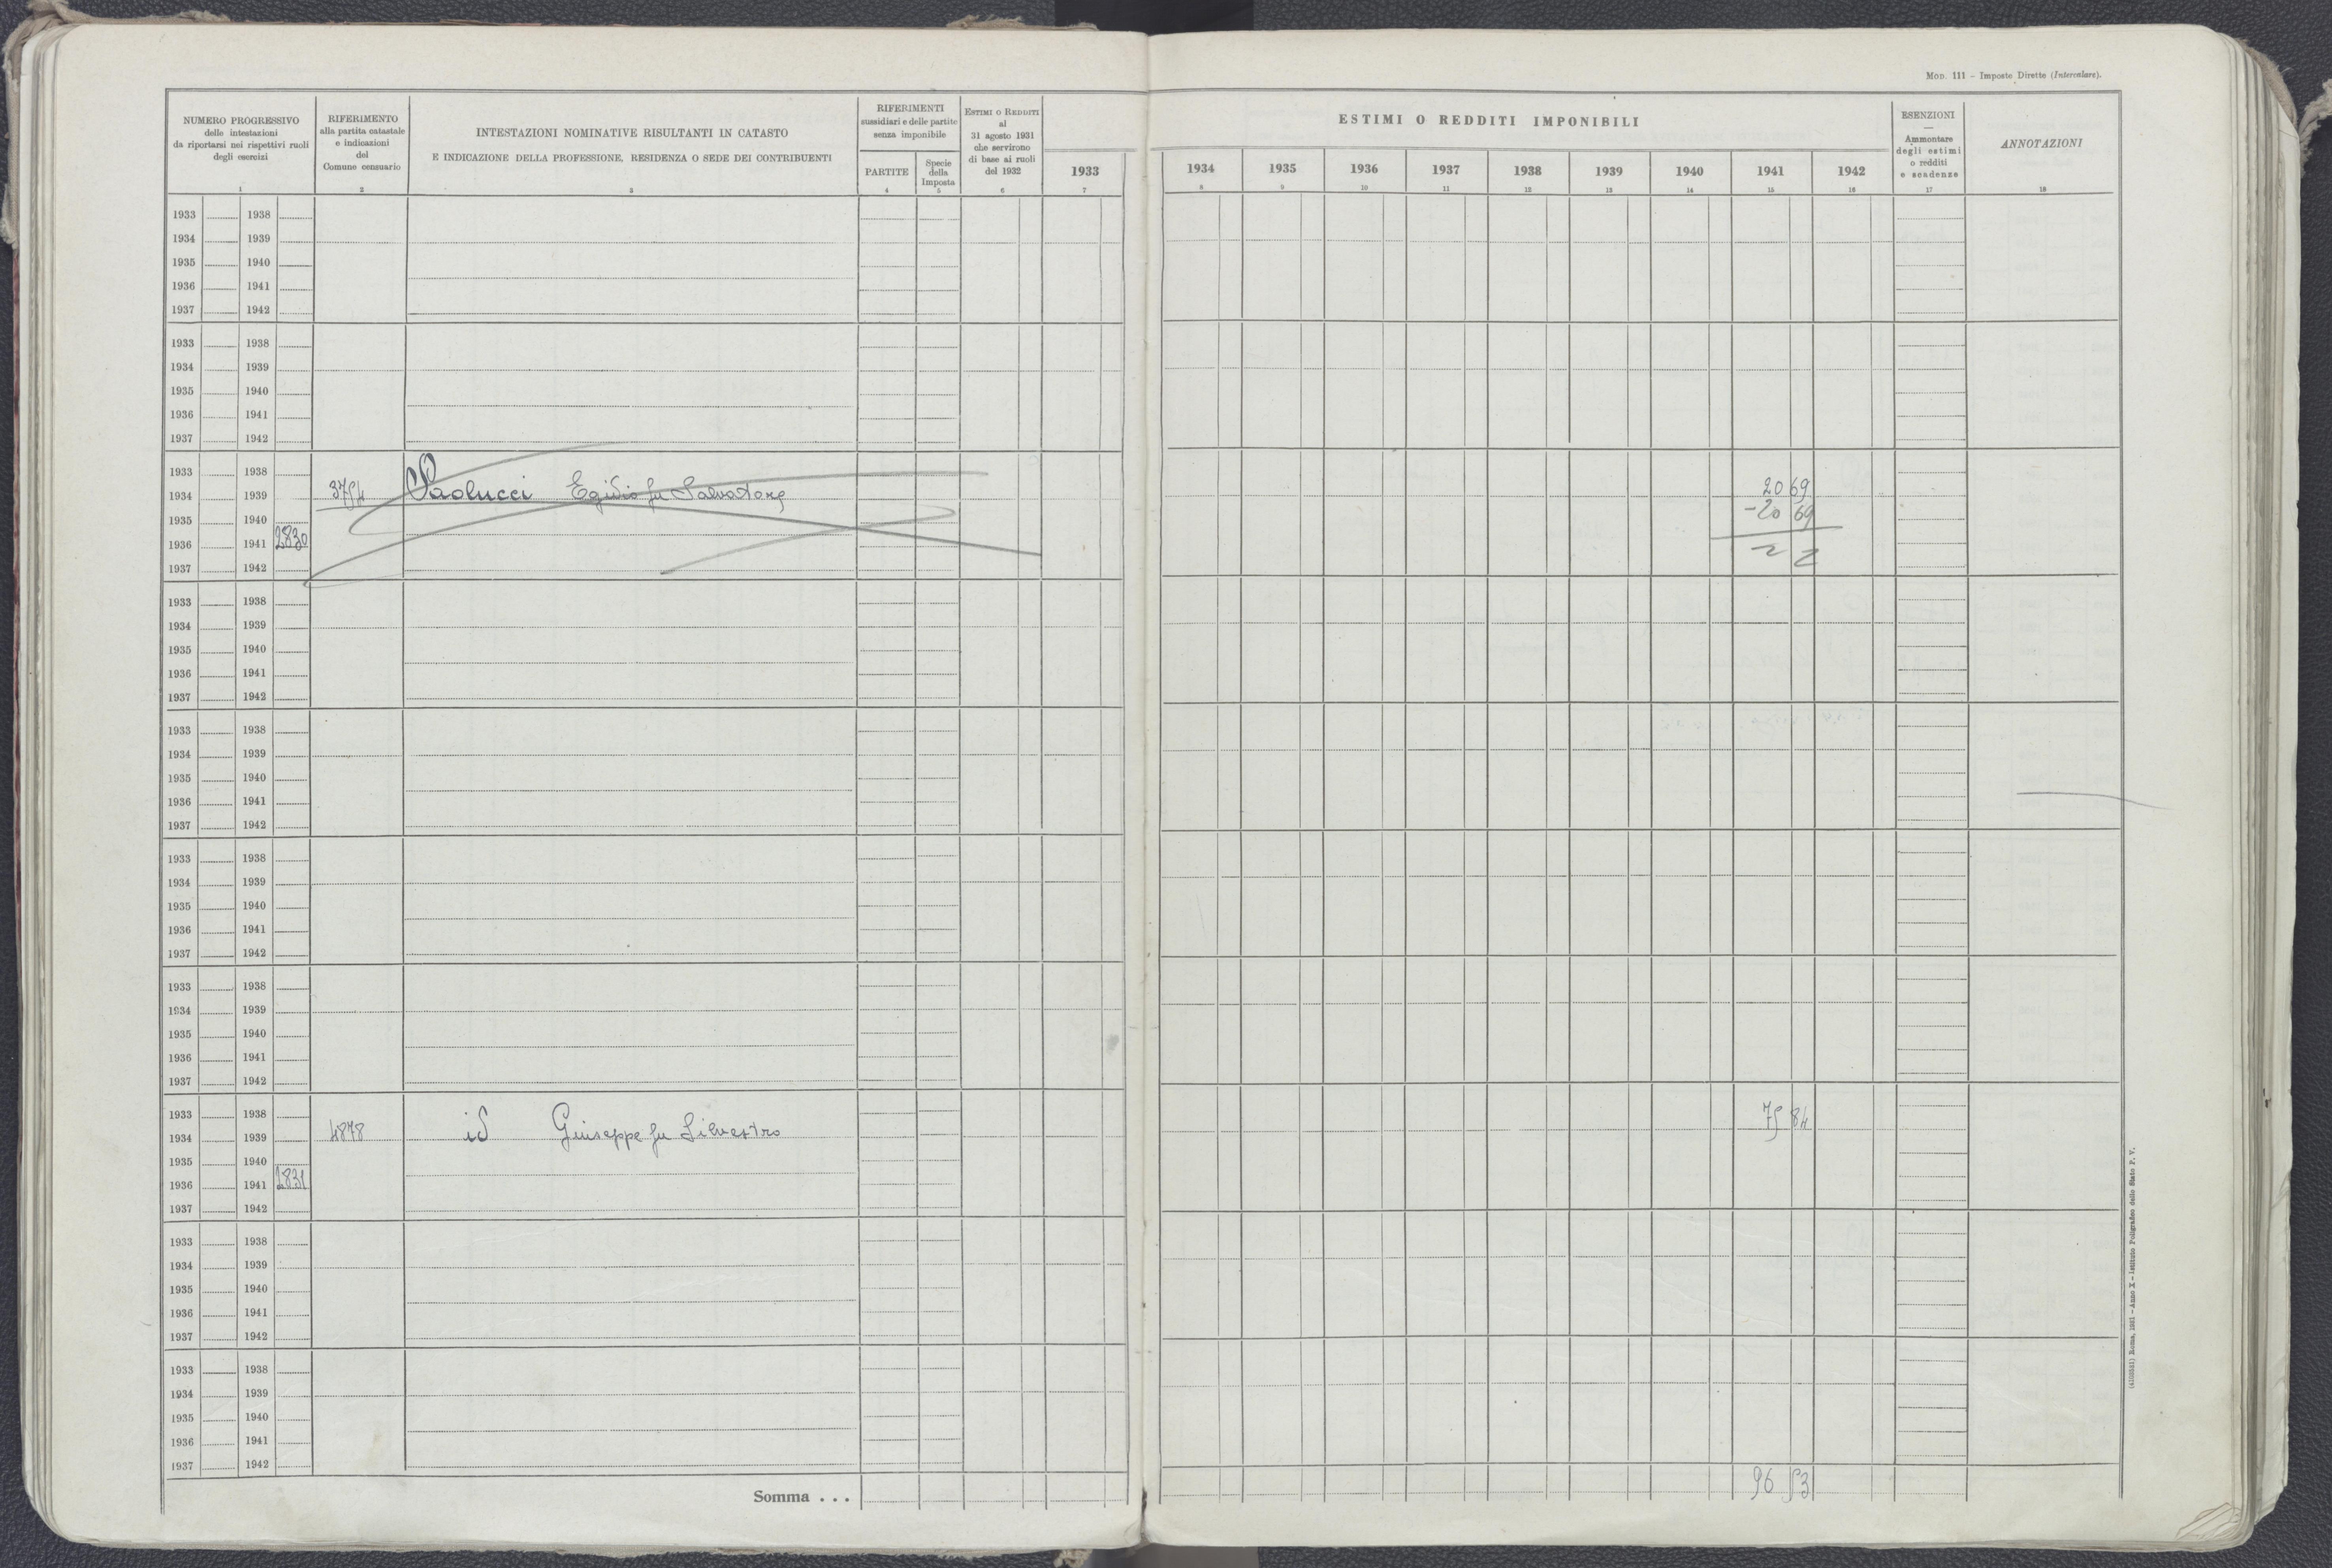 Mod. 111 - Imposte Dirette (Intercalare).
NUMERO PROGRESSIVO
delle intestazioni
da riportarsi nei rispettivi ruoli
degli esercizi
1
RIFERIMENTO
alla partita catastale
e indicazioni
del
Comune censuario
2
INTESTAZIONI NOMINATIVE RISULTANTI IN CATASTO
E INDICAZIONE DELLA PROFESSIONE, RESIDENZA O SEDE DEI CONTRIBUENTI
3
RIFERIMENTI
sussidiari e delle partite
senza imponibile
PARTITE
4
Specie
della
Imposta
5
ESTIMI O REDDITI
al
31 agosto 1931
che servirono
di base ai ruoli
del 1932
6
1933
7
ESTIMI O REDDITI IMPONIBILI
1934 1935 1936 1937 1938 1939 1940 1941 1942
8 9 10 11 12 13 14 15 16
ESENZIONI
—
Ammontare
degli estimi
o redditi
e scadenze
17
ANNOTAZIONI
18
1933 1938
1934 1939
1935 1940
1936 1941
1937 1942
1933 1938
1934 1939
1935 1940
1936 1941
1937 1942
1933 1938
1934 1939 3754 Paolucci Egidio fu Salvatore 20 69
1935 1940 -20 69
1936 1941 2830
1937 1942
1933 1938
1934 1939
1935 1940
1936 1941
1937 1942
1933 1938
1934 1939
1935 1940
1936 1941
1937 1942
1933 1938
1934 1939
1935 1940
1936 1941
1937 1942
1933 1938
1934 1939
1935 1940
1936 1941
1937 1942
1933 1938
1934 1939 4878 id Giuseppe fu Silvestro 75 84
1935 1940
1936 1941 2831
1937 1942
1933 1938
1934 1939
1935 1940
1936 1941
1937 1942
1933 1938
1934 1939
1935 1940
1936 1941
1937 1942
Somma . . . 96 53
Roma, 1931 - Anno X - Istituto Poligrafico dello Stato P. V.